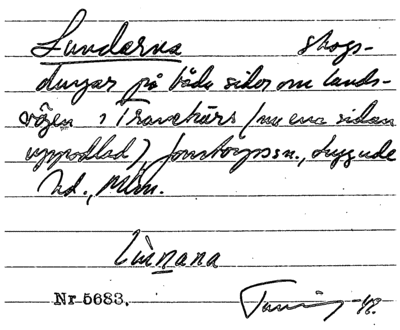 Lundarna skogs-
dungar på båda sidor om lands-
vägen i Tranekärs (nu ena sidan
uppodlad), Jonstorps sn., Luggude
hd., Mlm.
lùnana
Nr 5683.
-48.